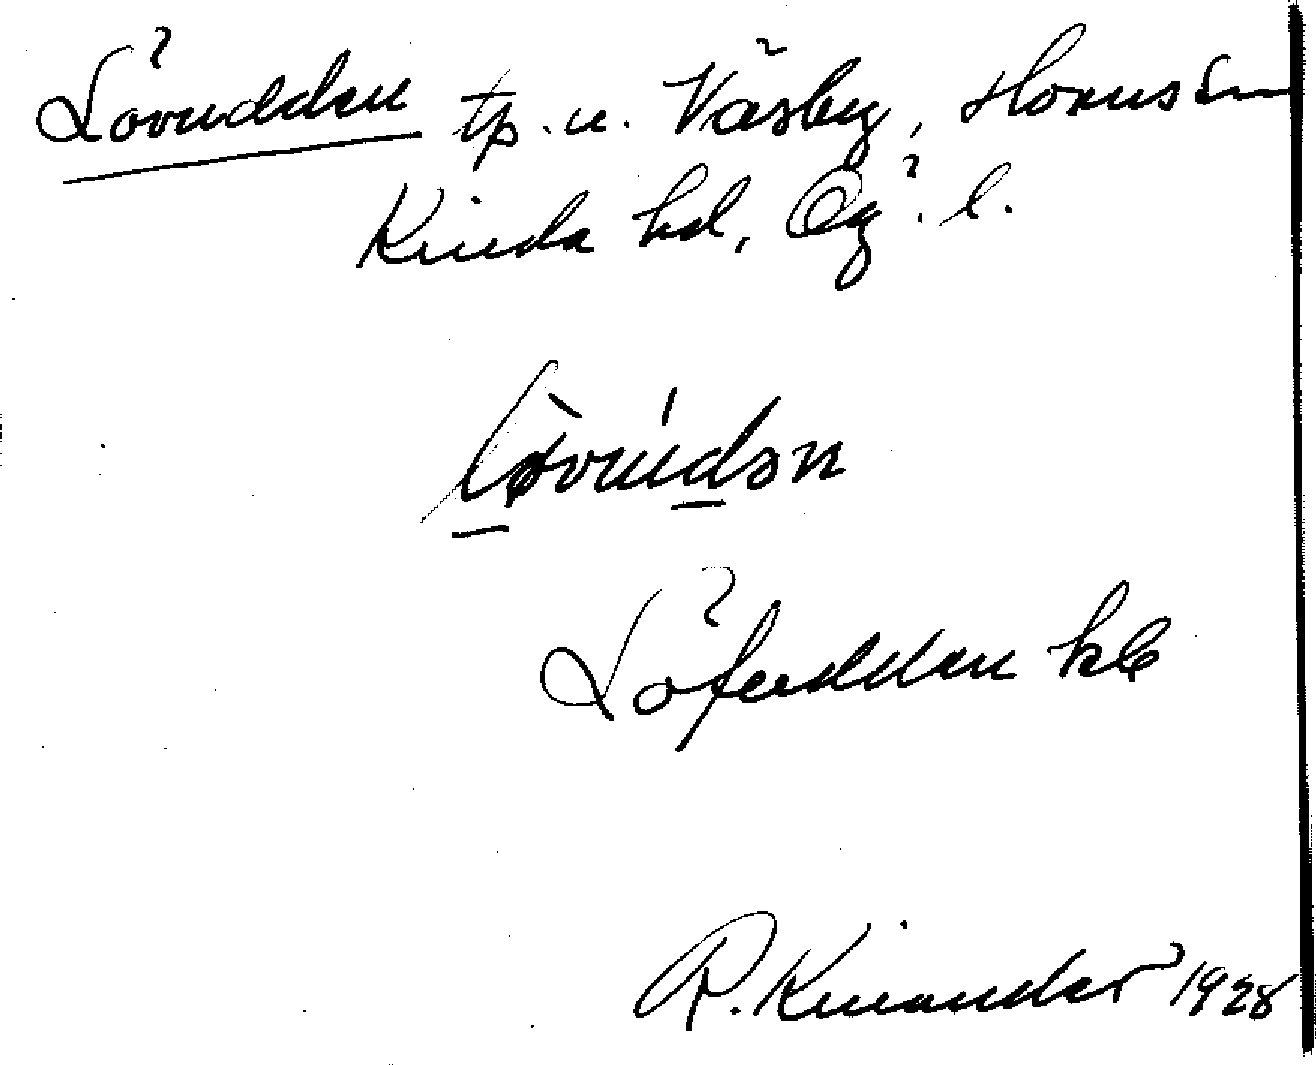 Lövudden tp. u. Väsby, Horns sn
Kinda hd, Ög. l.
Löfudden kb
R. Kinander 1928